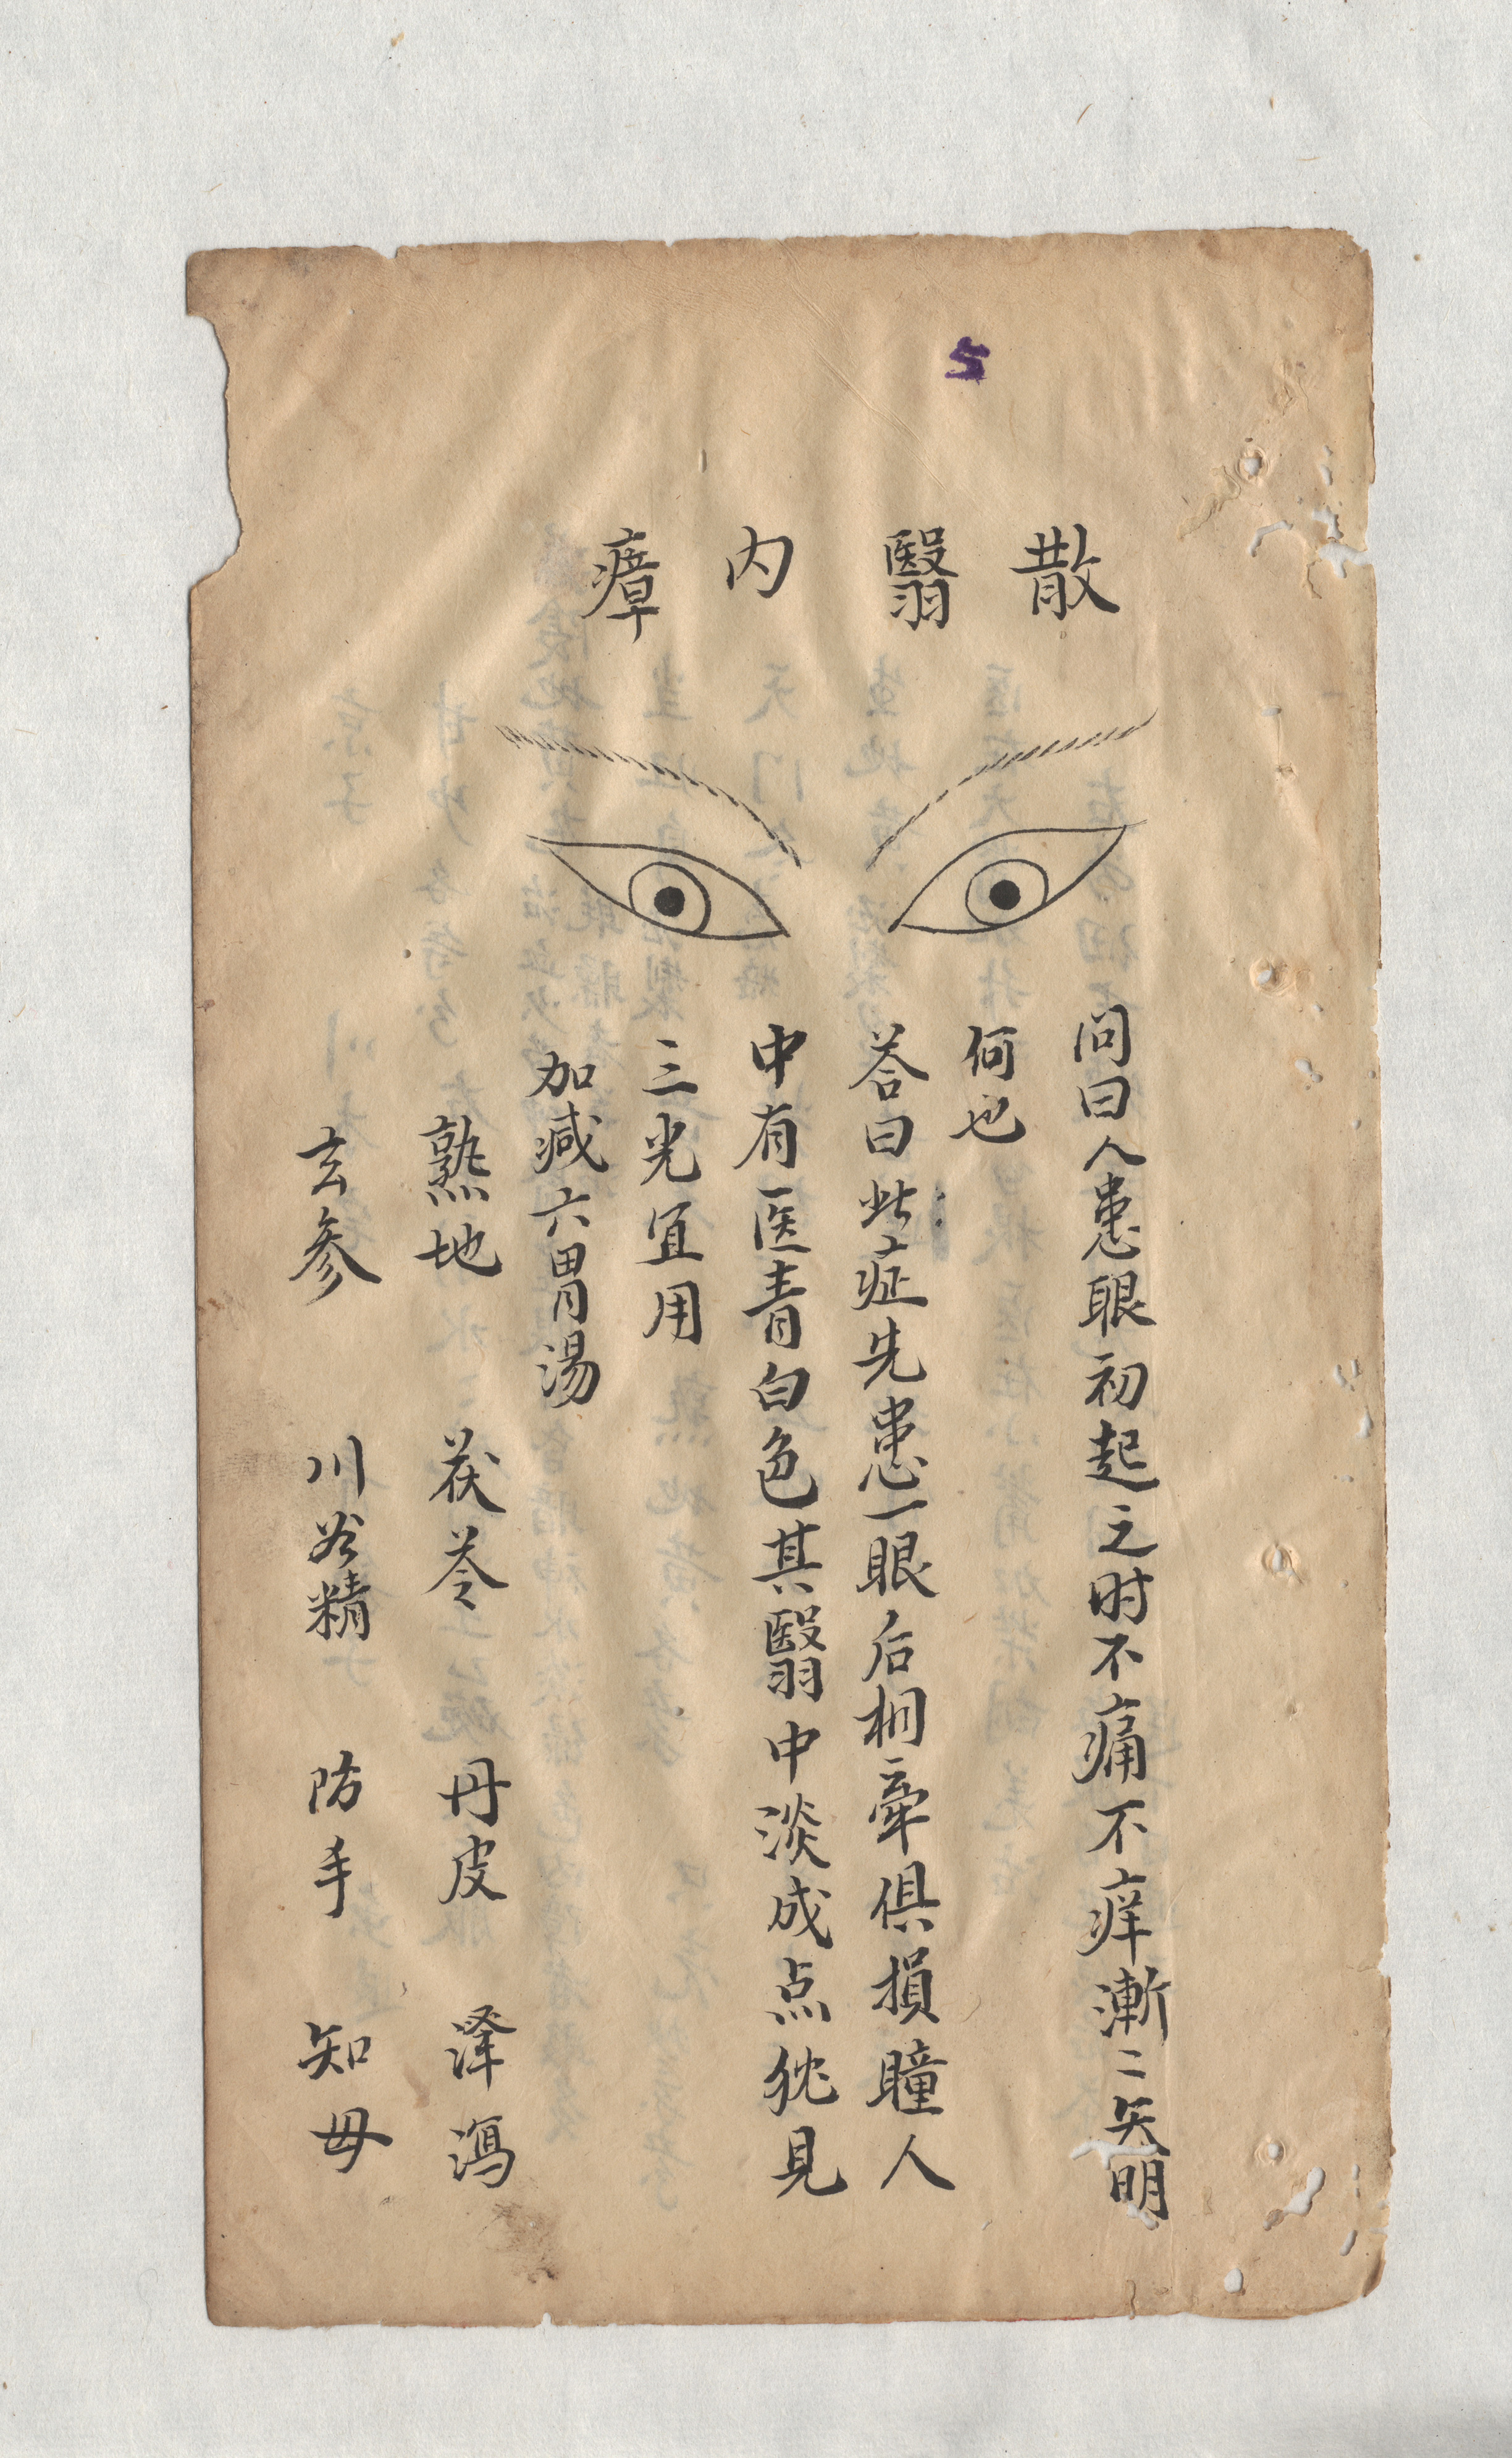 5
散翳内瘴
问曰人患眼初起之时不痛不痒漸二失明
何也
答曰此症先患一眼后相牵俱損瞳人
中有医青白色其翳中淡成点犹見
三光宜用
加减六胃湯
熟地 茯苓 丹皮 泽瀉
玄参 川谷精 防手 知母